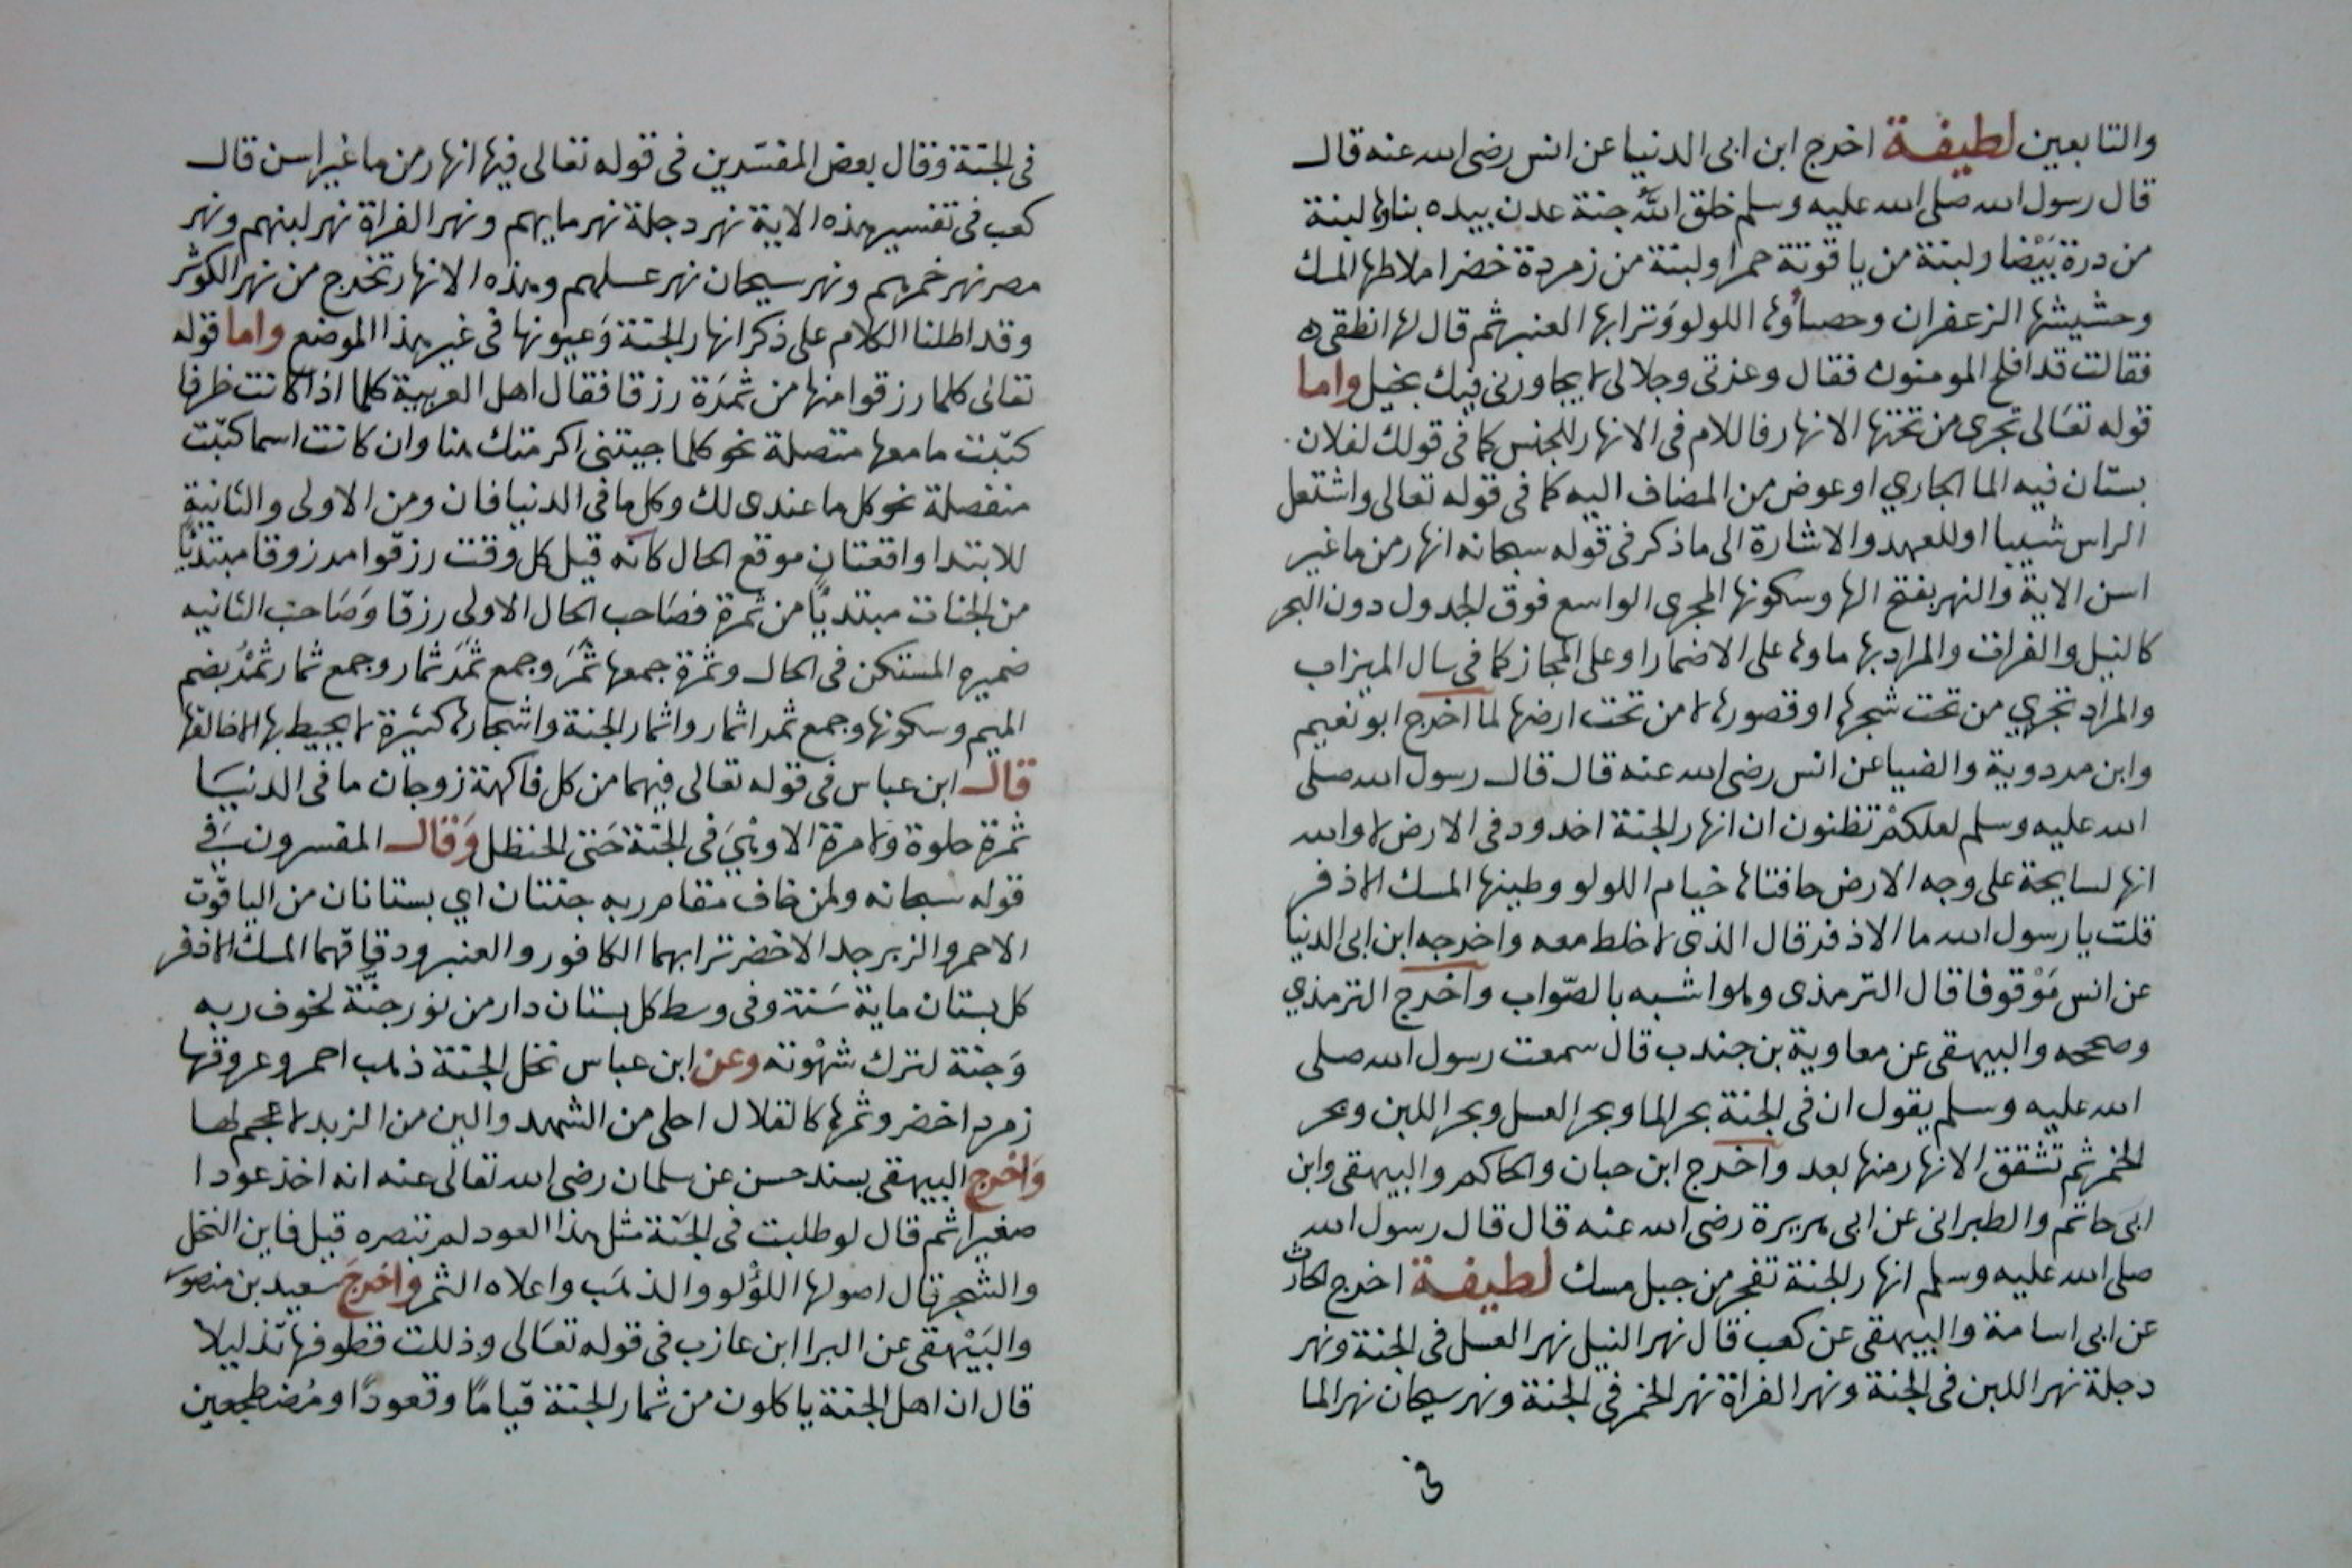 والتابعين لطيفة اخرج ابن ابى الدنيا عن انس رضى الله عنه قال
قال رسول الله صلى الله عليه وسلم خلق الله جنة عدن بيده بناؤها لبنة
من درة بيضا ولبنة من ياقوتة حمرا ولبنة من زمردة خضرا ملاطها المسك
وحشيشها الزعفران وحصباؤها اللولو وترابها العنبر ثم قال لها انطقى
فقالت قد افلح المومنون فقال وعزتى وجلالى لا يجاورنى فيك بخيل واما
قوله تعالى تجرى من تحتها الانهار فاللام فى الانهار للجنس كما فى قولك لفلان
بستان فيه الما الجاري او عوض من المضاف اليه كما فى قوله تعالى واشتعل
الراس شيبا او للعهد والاشارة الى ما ذكر فى قوله سبحانه انهار من ما غير
اسن الاية والنهر بفتح الها وسكونها المجرى الواسع فوق الجدول دون البحر
كالنيل والفرات والمراد بها ماوها على الاضمار او على المجاز كما فى سال الميزاب
والمراد تجري من تحت شجرها او قصورها لا من تحت ارضها لما اخرج ابو نعيم
وابن مردوية والضيا عن انس رضى الله عنه قال قال رسول الله صلى
الله عليه وسلم لعلكم تظنون ان انهار الجنة اخدود فى الارض لا والله
انها لسايحة على وجه الارض حافتاها خيام اللولو وطينها المسك الاذفر
قلت يا رسول الله ما الاذفر قال الذى لا خلط معه واخرجه ابن ابى الدنيا
عن انس موقوفا قال الترمذى وهو اشبه بالصواب واخرج الترمذي
وصححه والبيهقى عن معاوية بن جندب قال سمعت رسول الله صلى
الله عليه وسلم يقول ان فى الجنة بحر الما وبحر العسل وبحر اللبن وبحر
الخمر ثم تشقق الانهار منها بعد واخرج ابن حبان والحاكم والبيهقى وابن
ابى حاتم والطبرانى عن ابى هريرة رضى الله عنه قال قال رسول الله
صلى الله عليه وسلم انهار الجنة تفجر من جبل مسك لطيفة اخرج الحارث
عن ابى اسامة والبيهقى عن كعب قال نهر النيل نهر العسل فى الجنة ونهر
دجلة نهر اللبن فى الجنة ونهر الفراة نهر الخمر فى الجنة ونهر سيحان نهر الما
فى
فى الجنة وقال بعض المفسرين فى قوله تعالى فيها انهار من ما غير اسن قال
كعب فى تفسير هذه الاية نهر دجلة نهر مايهم ونهر الفراة نهر لبنهم ونهر
مصر نهر خمرهم ونهر سيحان نهر عسلهم وهذه الانهار تخرج من نهر الكوثر
وقد اطلنا الكلام على ذكر انهار الجنة وعيونها فى غير هذا الموضع واما قوله
تعالى كلما رزقوا منها من ثمرة رزقا فقال اهل العربية كلما اذا كانت ظرفا
كتبت ما معها متصلة نحو كلما جيتنى اكرمتك هنا وان كانت اسما كتبت
منفصلة نحو كل ما عندى لك وكل ما فى الدنيا فان ومن الاولى والثانية
للابتدا واقعتان موقع الحال كانه قيل كل وقت رزقوا مرزوقا مبتديا
من الجنات مبتديا من ثمرة فصاحب الحال الاولى رزقا وصاحب الثانيه
ضميره المستكن فى الحال وثمرة جمعها ثمر وجمع ثمر ثمار وجمع ثمار ثمر بضم
الميم وسكونها وجمع ثمر اثمار واثمار الجنة واشجارها كثيرة لا يحيط بها الا خالقها
قال ابن عباس فى قوله تعالى فيهما من كل فاكهة زوجان ما فى الدنيا
ثمرة حلوة ولا مرة الا وهى فى الجنة حتى الحنظل وقال المفسرون فى
قوله سبحانه ولمن خاف مقام ربه جنتان اي بستانان من الياقوت
الاحمر والزبرجد الاخضر ترابهما الكافور والعنبر ودقاقهما المسك الاذفر
كل بستان ماية سنة وفى وسط كل بستان دار من نور جنة لخوف ربه
وجنة لترك شهوته وعن ابن عباس نخل الجنة ذهب احمر وعروقها
زمرد اخضر وثمرها كالقلال احلى من الشهد والين من الزبد لا عجم لها
واخرج البيهقى بسند حسن عن سلمان رضى الله تعالى عنه انه اخذ عودا
صغيرا ثم قال لو طلبت فى الجنة مثل هذا العود لم تبصره قيل فاين النخل
والشجر قال اصولها اللؤلو والذهب واعلاه الثمر واخرج سعيد بن منصور
والبيهقى عن البرا ابن عازب فى قوله تعالى وذللت قطوفها تذليلا
قال ان اهل الجنة ياكلون من ثمار الجنة قياما وقعودا ومضطجعين